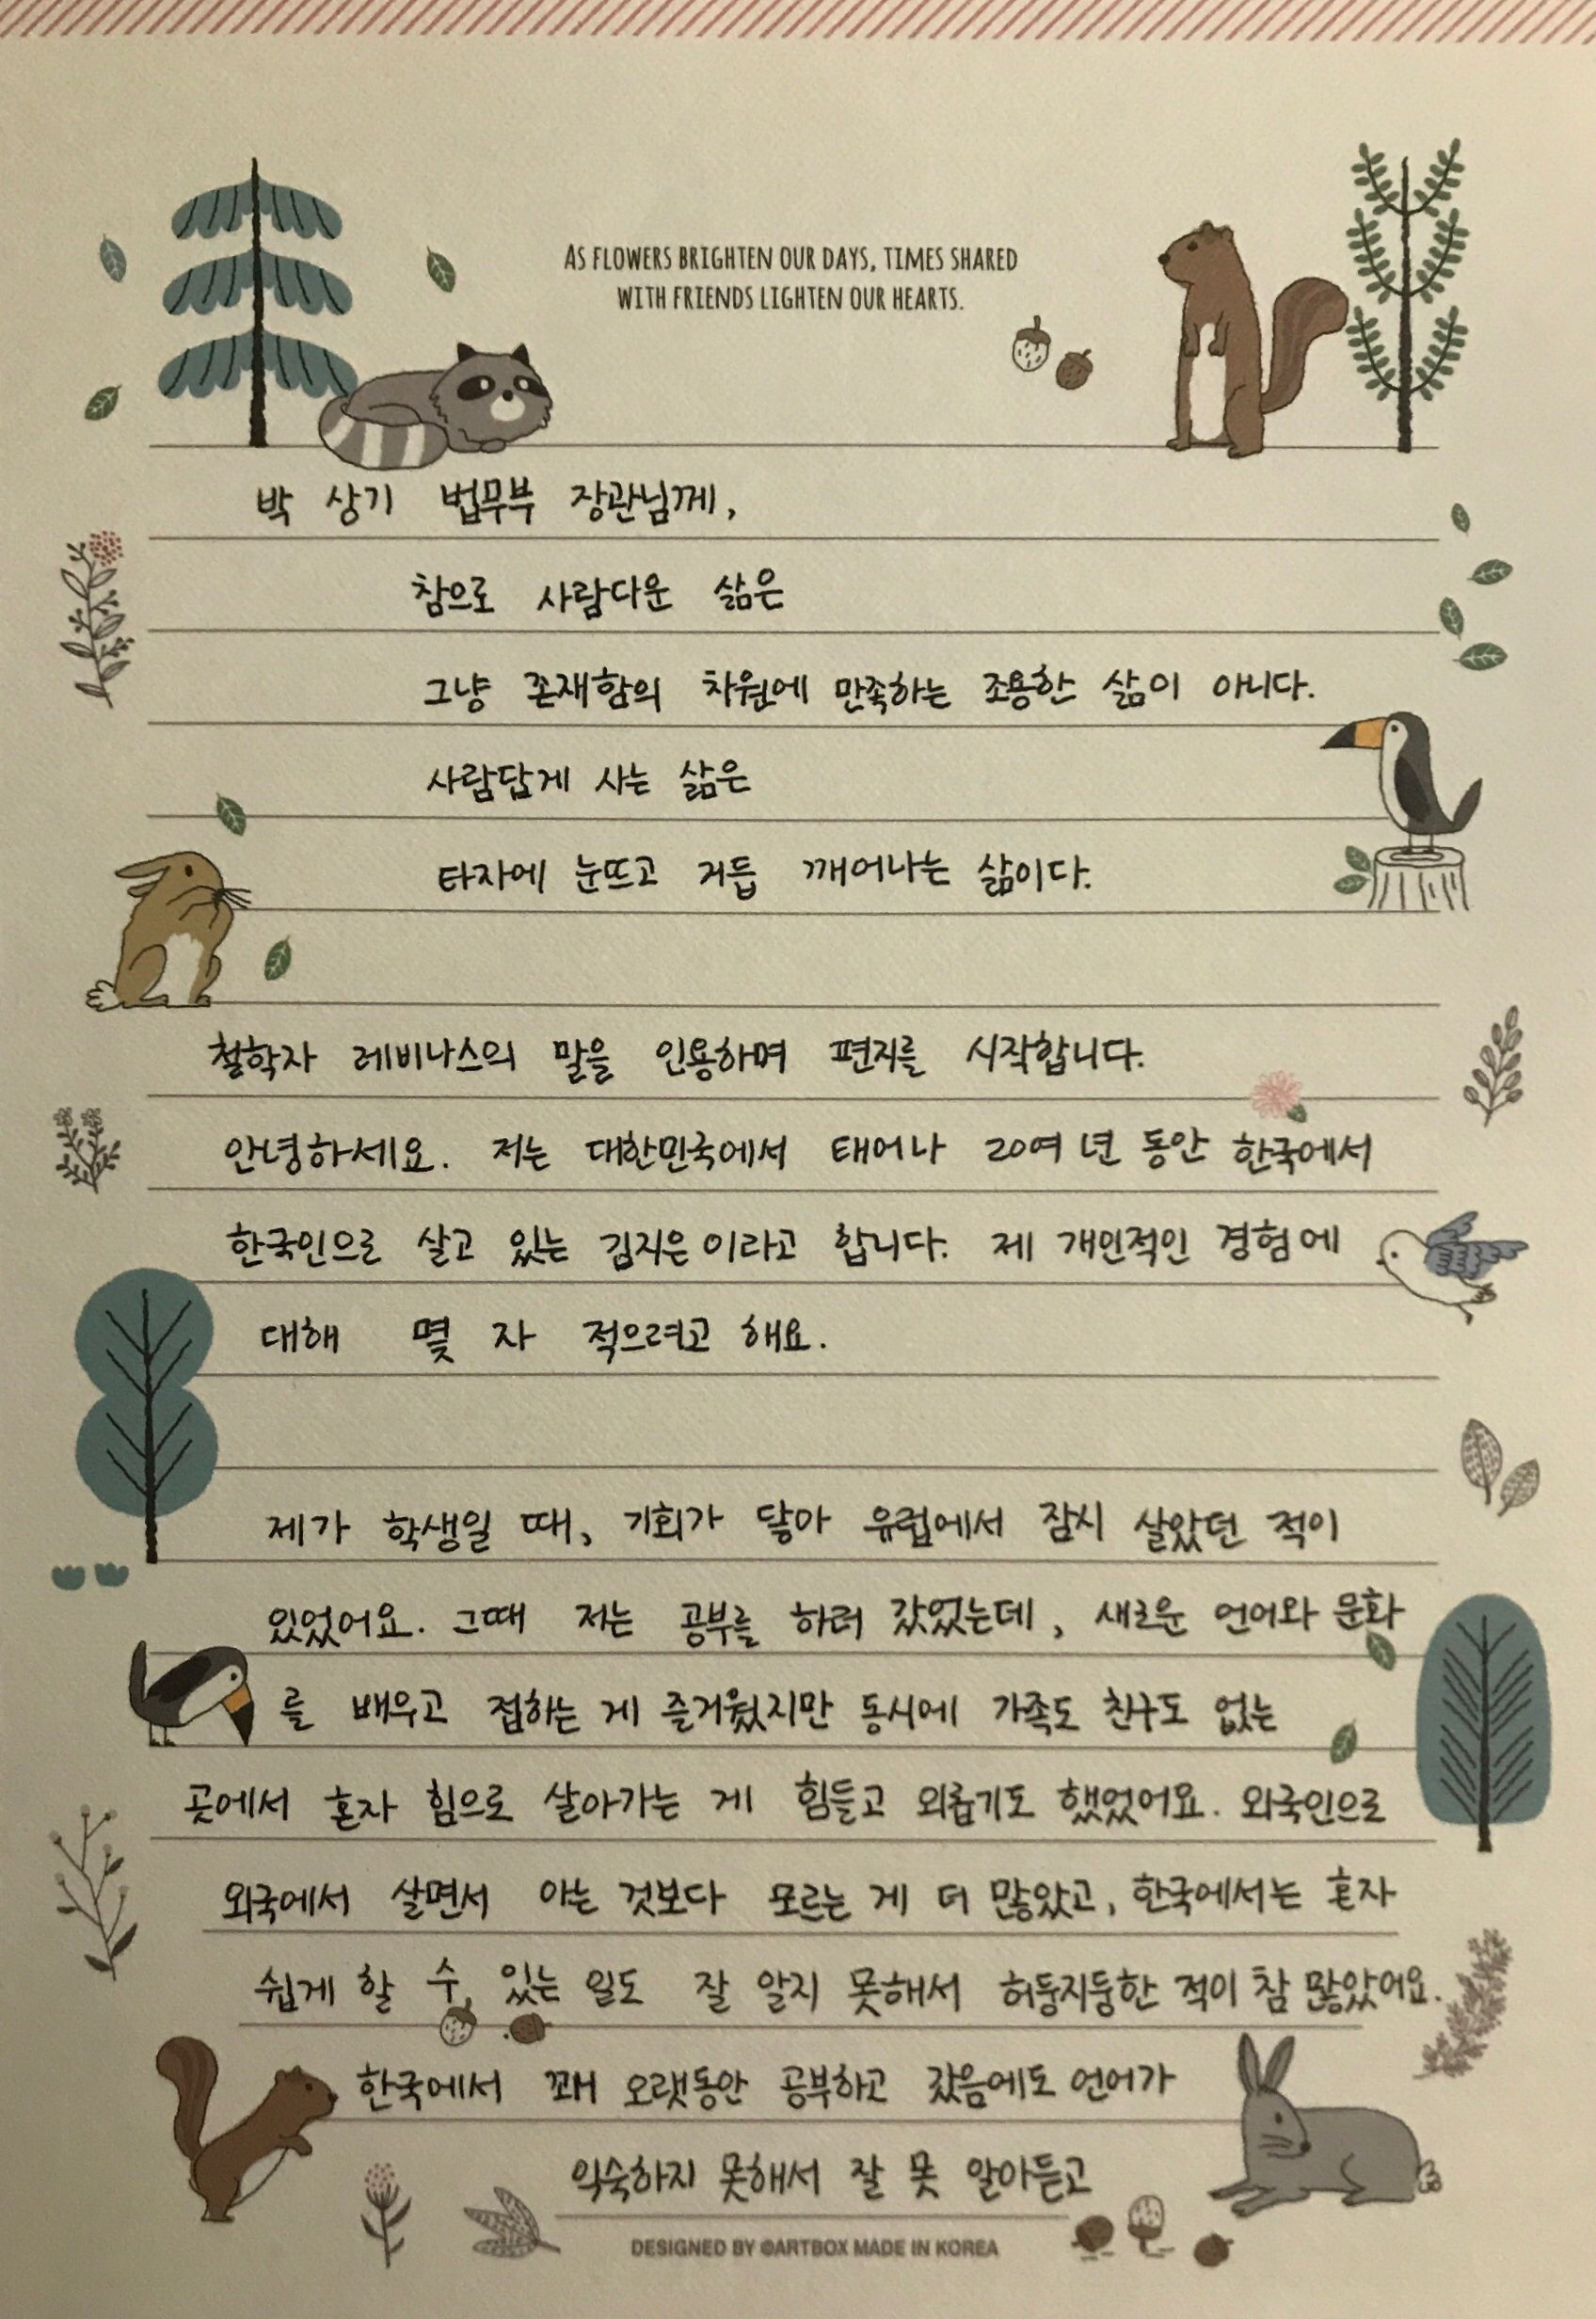 AS FLOWERS BRIGHTEN OUR DAYS, TIMES SHARED
WITH FRIENDS LIGHTEN OUR HEARTS.
박 상기 법무부 장관님께,
참으로 사람다운 삶은
그냥 존재함의 차원에 만족하는 조용한 삶이 아니다.
사람답게 사는 삶은
타자에 눈뜨고 거듭 깨어나는 삶이다.
철학자 레비나스의 말을 인용하며 편지를 시작합니다.
안녕하세요. 저는 대한민국에서 태어나 20여 년 동안 한국에서
한국인으로 살고 있는 김지은이라고 합니다. 제 개인적인 경험에
대해 몇 자 적으려고 해요.
제가 학생일 때, 기회가 닿아 유럽에서 잠시 살았던 적이
있었어요. 그때 저는 공부를 하러 갔었는데, 새로운 언어와 문화
를 배우고 접하는 게 즐거웠지만 동시에 가족도 친구도 없는
곳에서 혼자 힘으로 살아가는 게 힘들고 외롭기도 했었어요. 외국인으로
외국에서 살면서 아는 것보다 모르는 게 더 많았고, 한국에서는 혼자
쉽게 할 수 있는 일도 잘 알지 못해서 허둥지둥한 적이 참 많았어요.
한국에서 꽤 오랫동안 공부하고 갔음에도 언어가
익숙하지 못해서 잘 못 알아듣고
DESIGNED BY @ARTBOX MADE IN KOREA